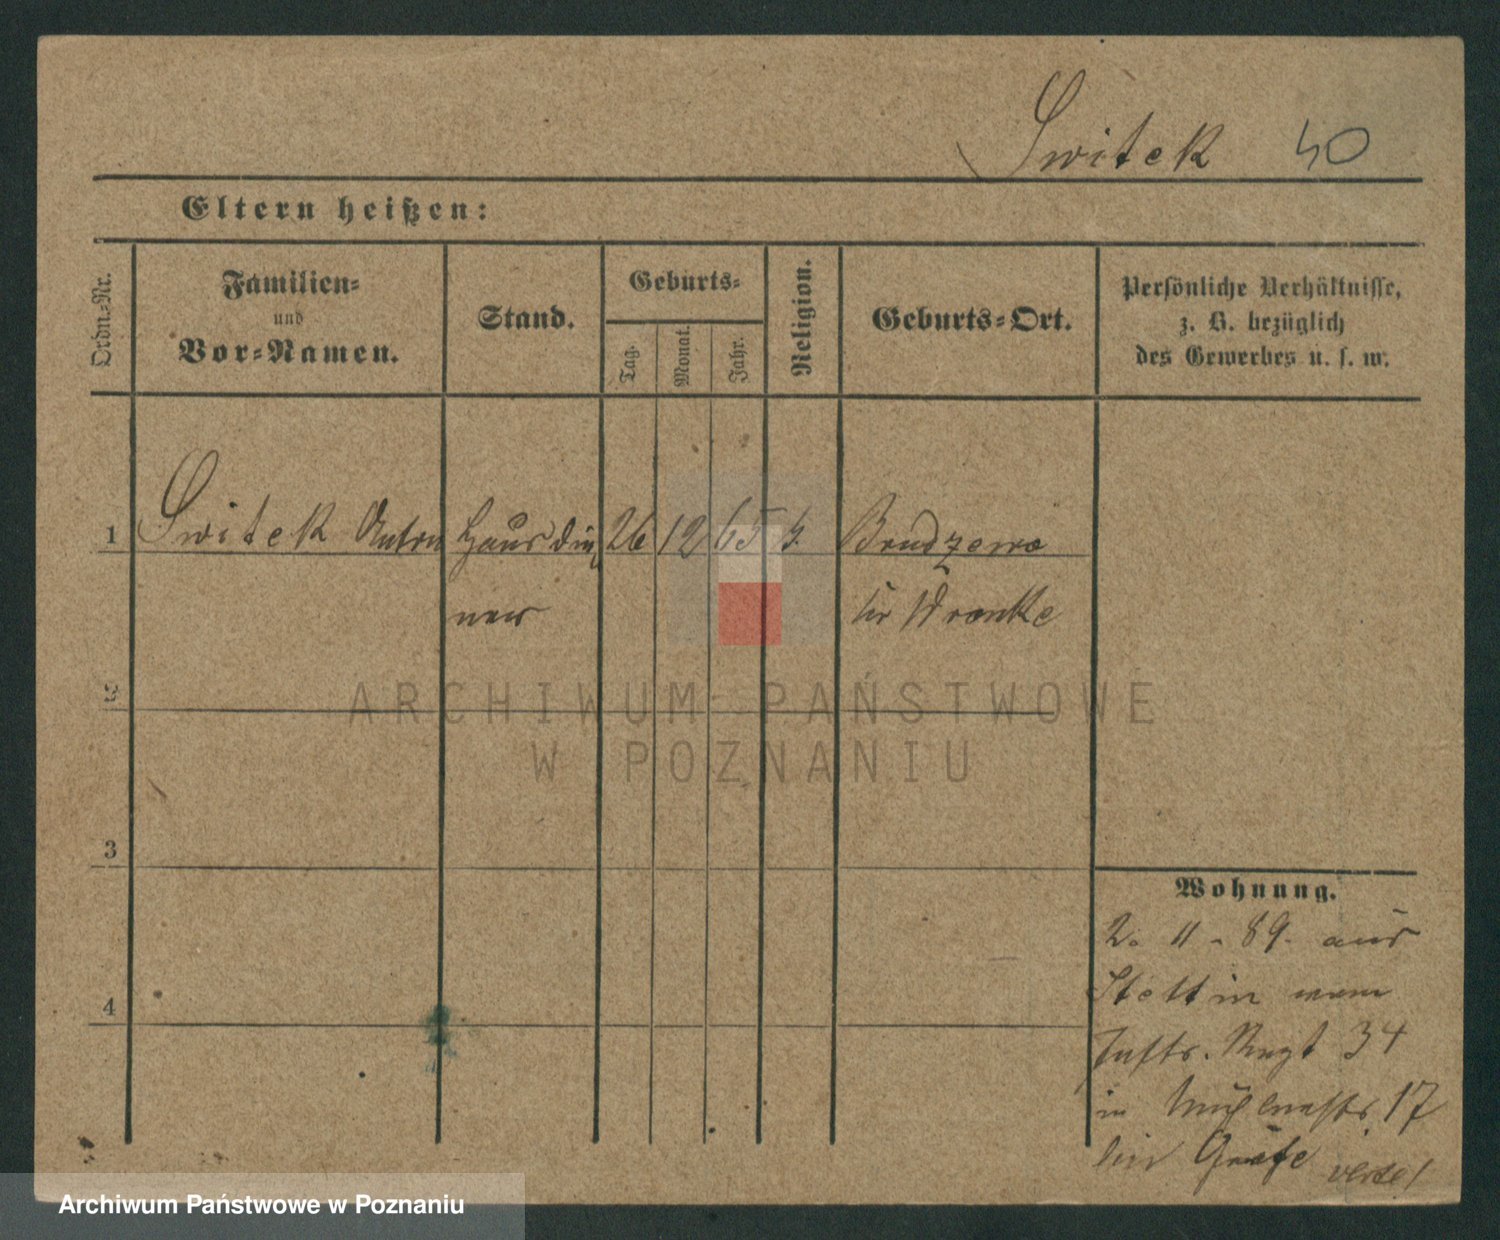 Switek 40
Eltern heißen:
Ordn.-Nr.
Familien-
und
Vor-Namen.
Stand.
Geburts-
Tag.
Monat.
Jahr.
Religion.
Geburts-Ort.
Persönliche Verhältnisse,
z. B. bezüglich
des Gewerbes u. s. w.
1 Switek Anton Hausdie 26 12 65 k. Brudzewo
ner bei Wronke
2
ARCHIWUM PAŃSTWOWE
W POZNANIU
3
Wohnung.
2. 11 - 89. aus
Stettin vom
4
Regt 34
in Mühlenstr. 17
bei Gräfe
Archiwum Państwowe w Poznaniu